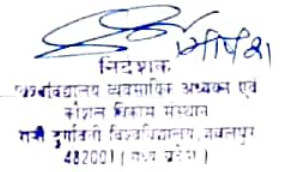 निदेशक
विश्वविद्यालय व्यवसायिक अध्ययन एवं
कौशल विकास संस्थान
रानी दुर्गावती विश्वविद्यालय, जबलपुर
482001 ( मध्य प्रदेश )